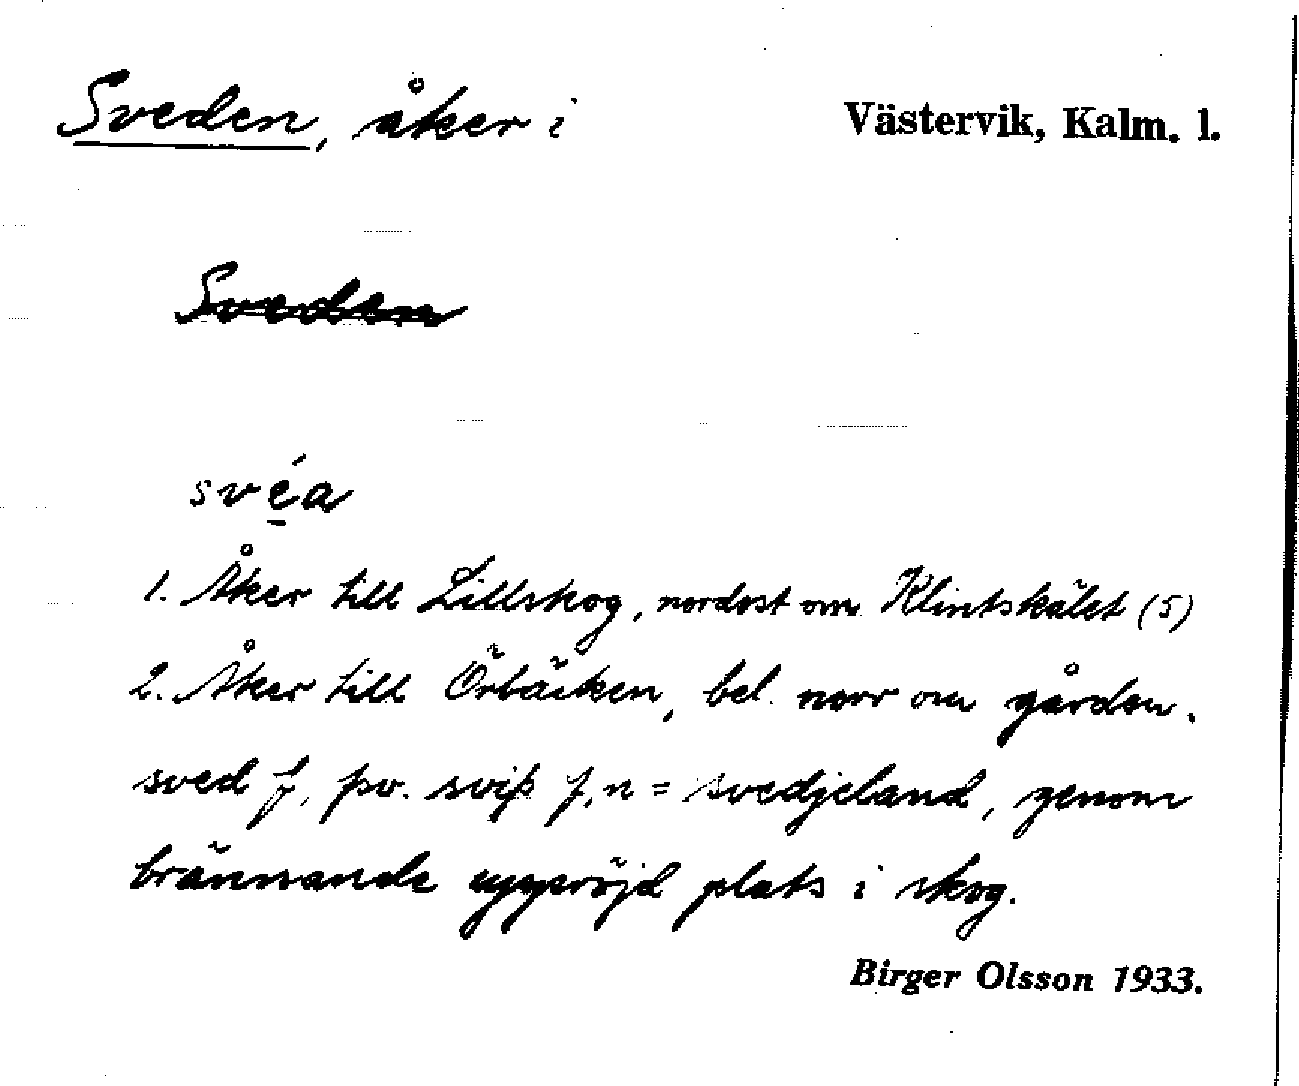 Sveden, åker i Västervik, Kalm. l.
Sveden
svéa
1. Åker till Lillskog, nordost om Klintskälet (5)
2. Åker till Örbäcken, bel. norr om gården.
sved f, fsv. sviþ f, n = svedjeland, genom
brännande uppröjd plats i skog.
Birger Olsson 1933.